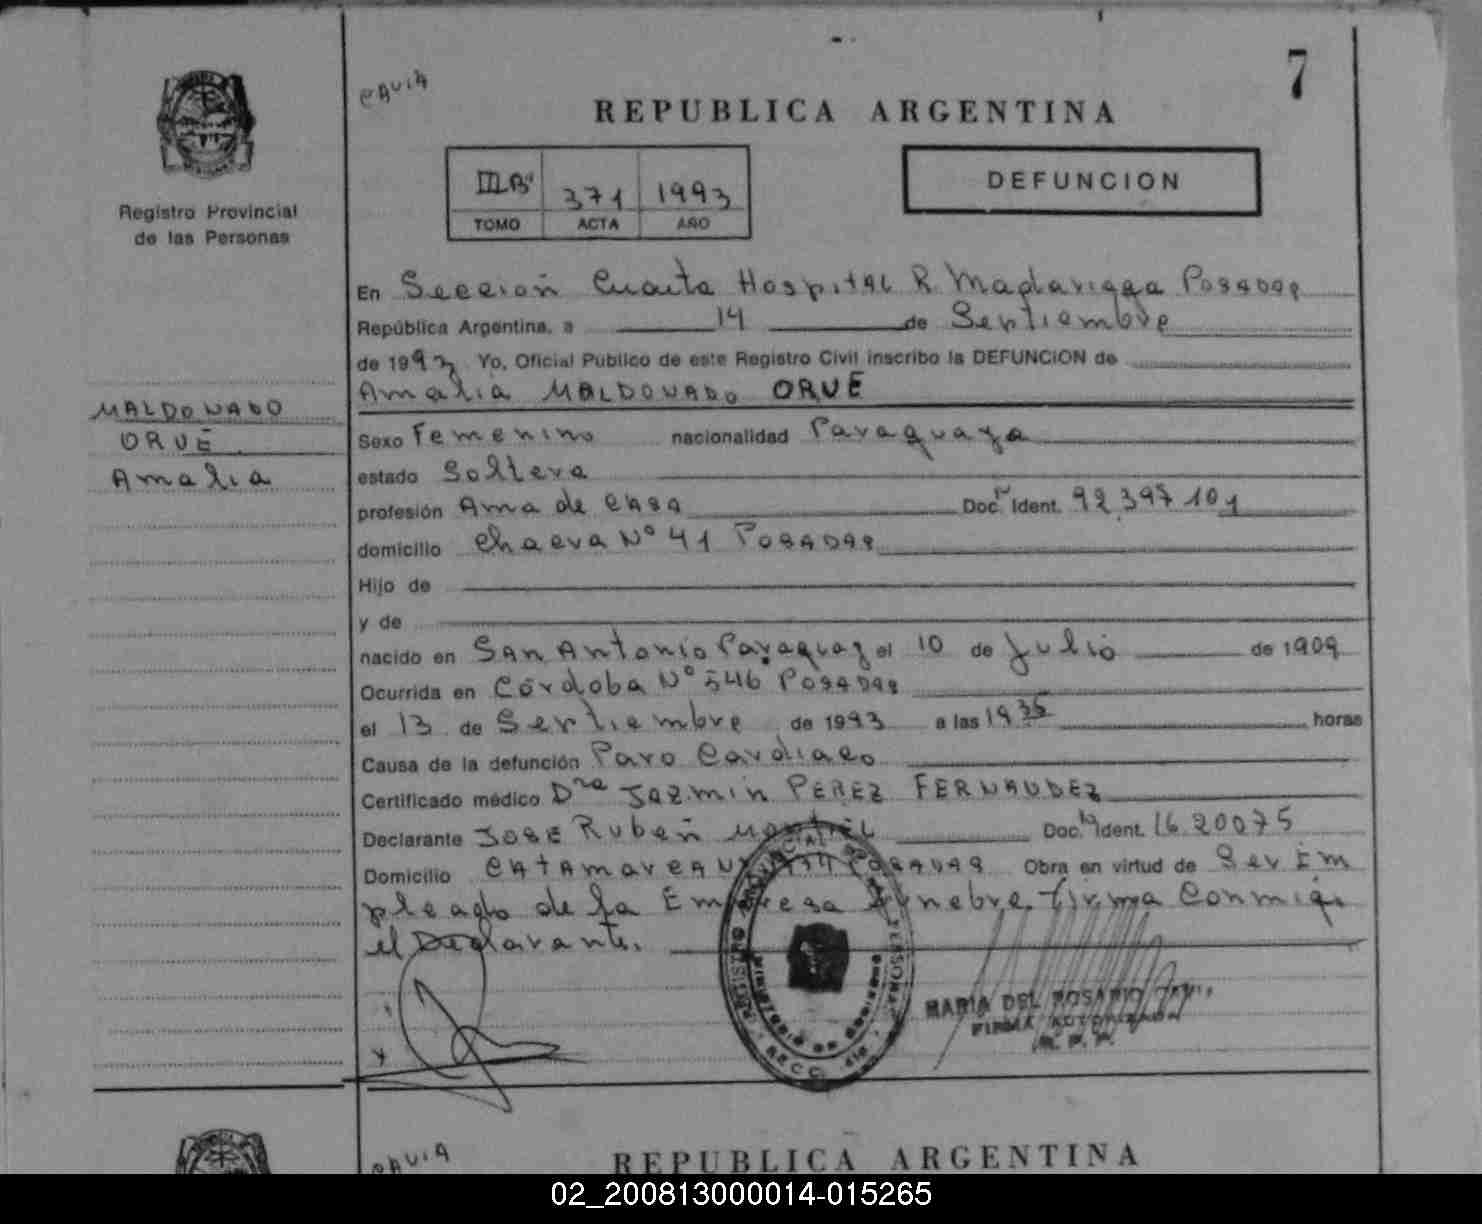 7
CAVIA
REPUBLICA ARGENTINA
DEFUNCION
371 1993
TOMO ACTA AÑO
Registro Provincial
de las Personas
En Sección Cuarta Hospital R. Madariaga Posadas
República Argentina, a 14 de Septiembre
de 1993 Yo, Oficial Público de este Registro Civil inscribo la DEFUNCION de
Amalia MALDONADO ORUÉ
MALDONADO
ORUÉ
Amalia
Sexo Femenino nacionalidad Paraguaya
estado Soltera
profesión Ama de casa Doc. Ident. 92.397.101
domicilio Nº 41 Posadas
Hijo de
y de
nacido en San Antonio Paraguay el 10 de Julio de 1909
Ocurrida en Córdoba Nº 546 Posadas
el 13 de Septiembre de 1993 a las 19 35 horas
Causa de la defunción Paro Cardiaco
Certificado médico Dra Jazmin PEREZ FERNANDEZ
Declarante José Rubén Doc. Ident. 16.20075
Domicilio Catamarca Posadas Obra en virtud de Ser Em
pleado de la Empresa Fúnebre. Firma Conmigo
el Declarante.
REGISTRO PROVINCIAL DE LAS PERSONAS
MINISTERIO DE GOBIERNO
SECC. 4ta
MARIA DEL ROSARIO CAVIA
FIRMA AUTORIZADA
R. P. P.
CAVIA
REPUBLICA ARGENTINA
02_200813000014-015265